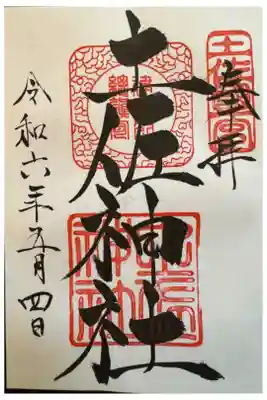 奉拝
土佐一宮
土佐神社
土佐神社
令和六年五月四日